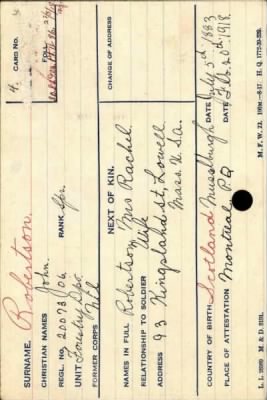 4. CARD No.
FOLL
SURNAME. Robertson.
CHRISTIAN NAMES John.
REGL. No. 20073106. RANK Spr.
UNIT Forestry Dpo.
FORMER CORPS Nil
NEXT OF KIN.
CHANGE OF ADDRESS
NAMES IN FULL Robertson Mrs Rachel
RELATIONSHIP TO SOLDIER Wife
ADDRESS 93 St, Lowell
Mass. U Sa.
COUNTRY OF BIRTH Scotland Musselburgh DATE July 5th 1883
PLACE OF ATTESTATION Montreal P.Q DATE Feb. 20th 1918.
M. F. W. 22. 100M.—8-17 H. Q. 1772-39-339.